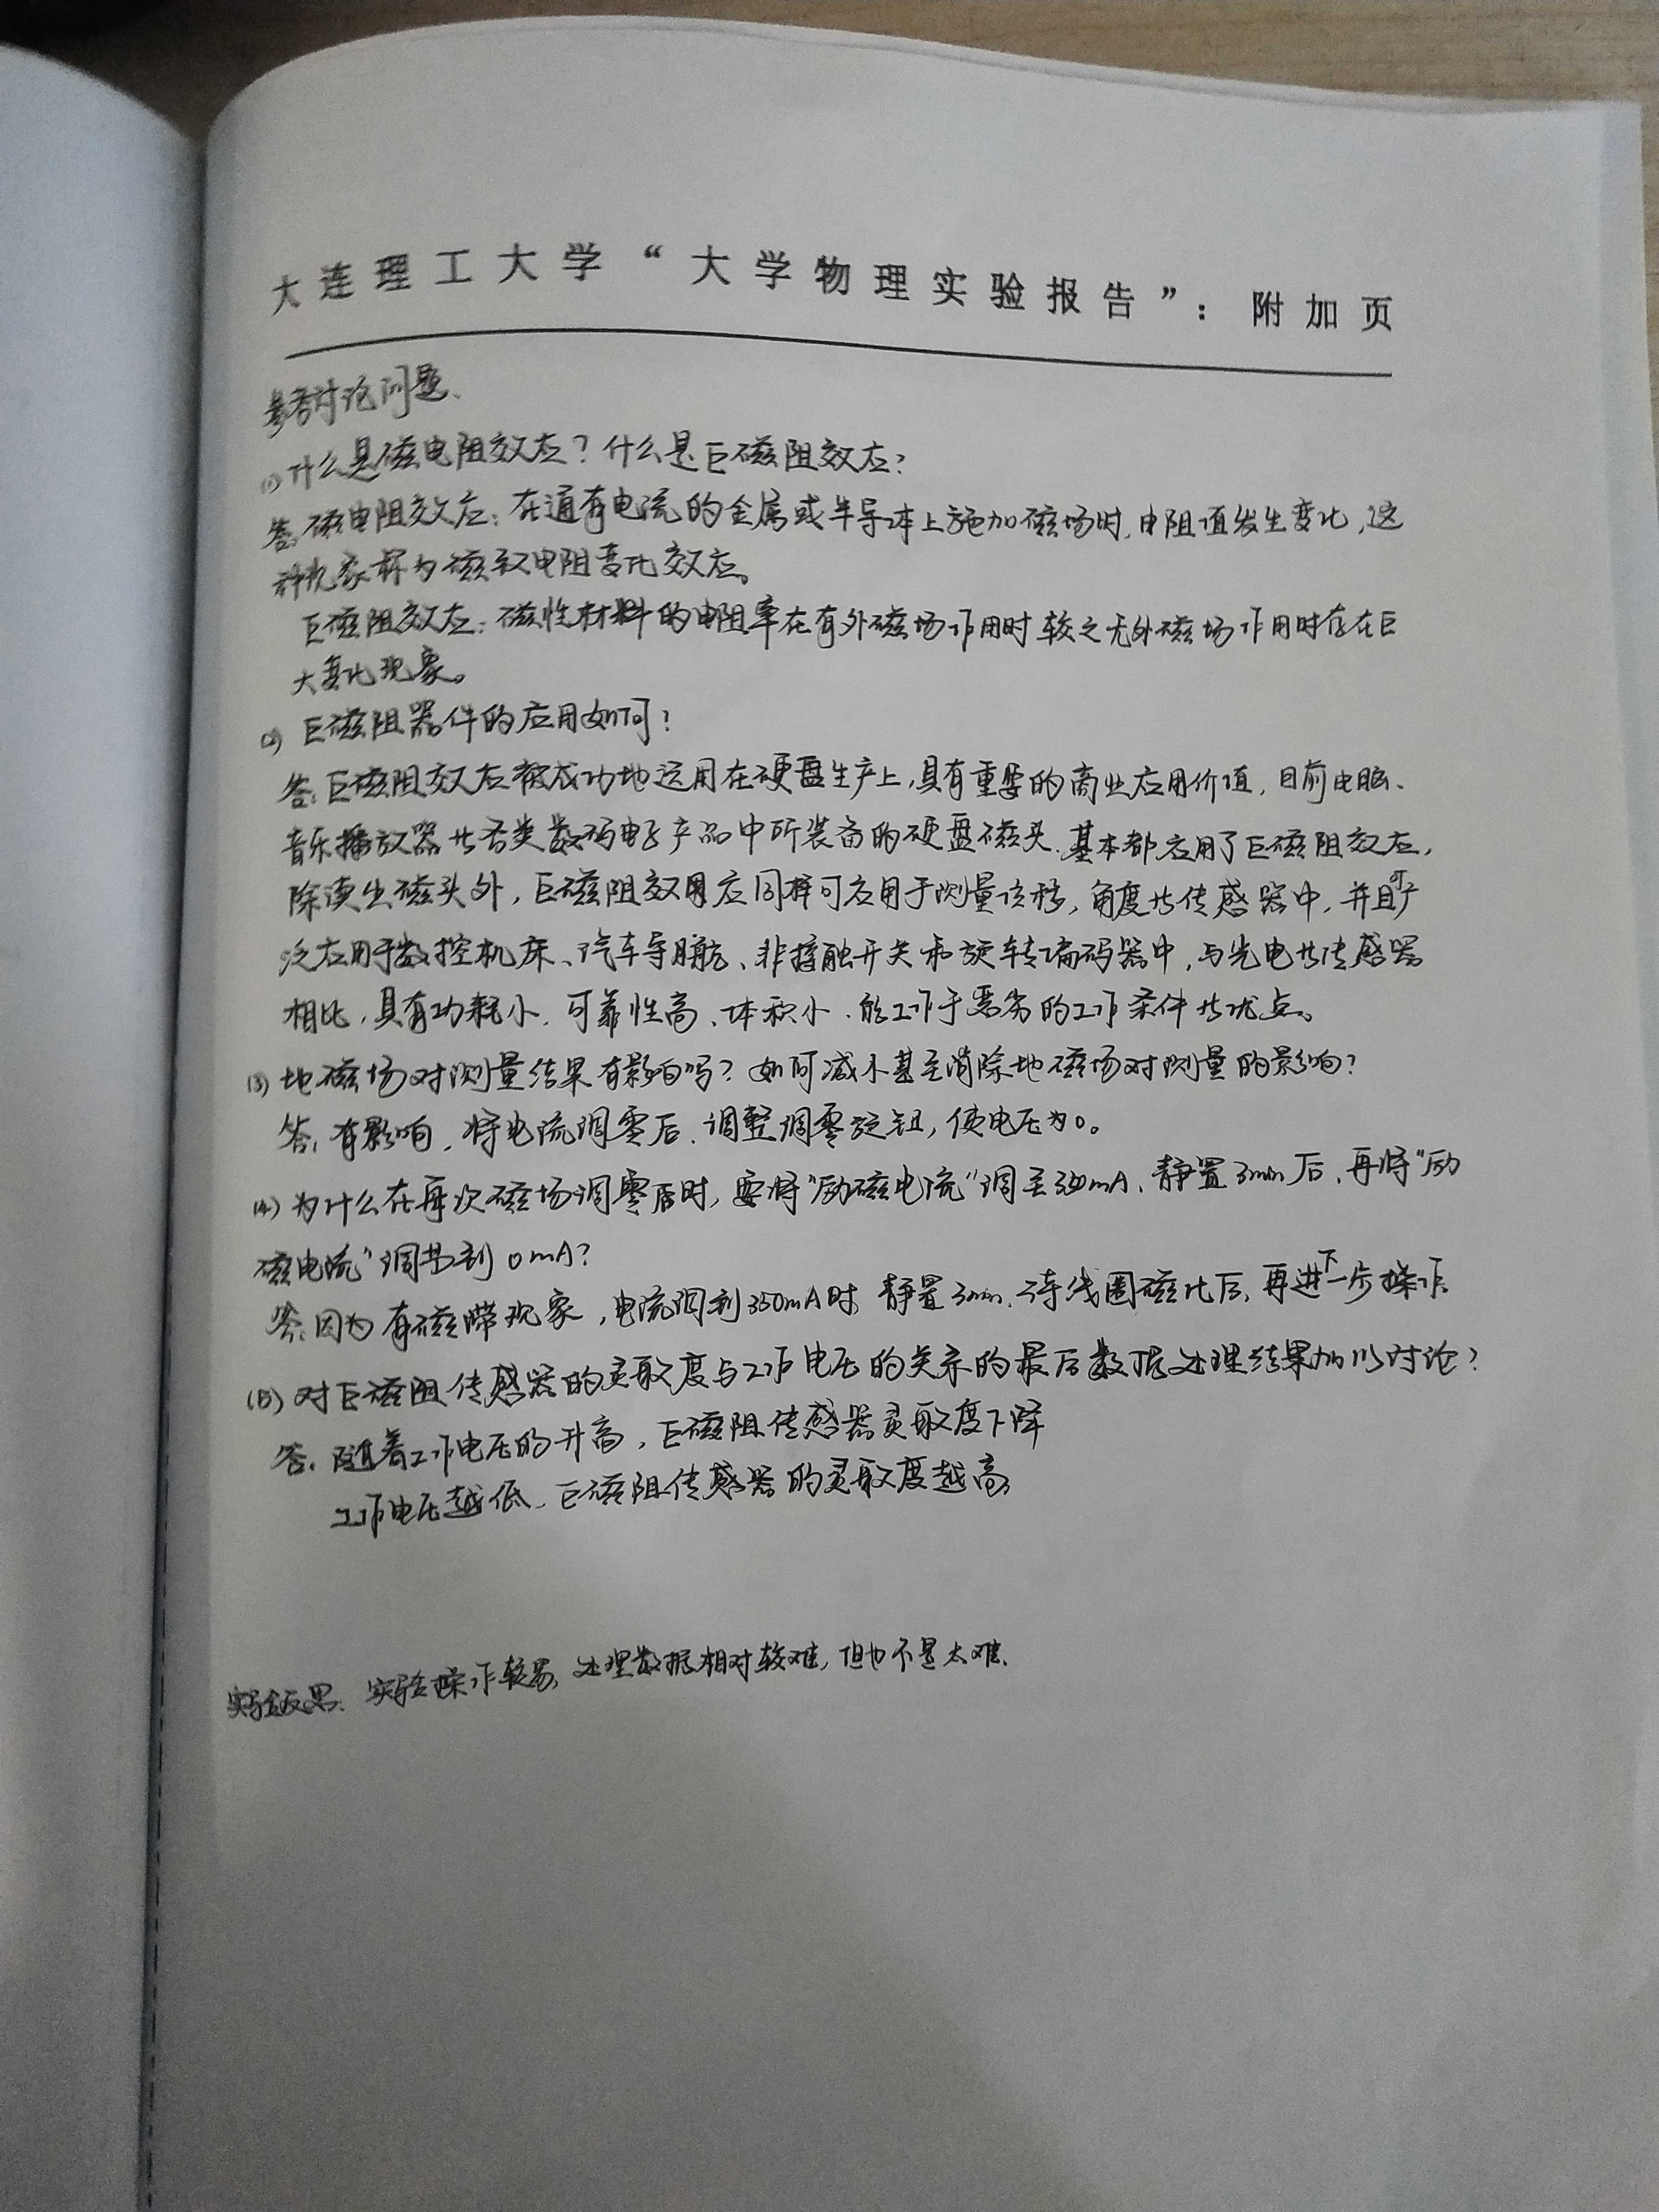 大连理工大学“大学物理实验报告”：附加页
参考讨论问题、
(1)什么是磁电阻效应？什么是巨磁阻效应？
答：磁电阻效应：在通有电流的金属或半导体上施加磁场时，电阻值发生变化，这
种现象称为磁致电阻变化效应。
巨磁阻效应：磁性材料的电阻率在有外磁场作用时较之无外磁场作用时存在巨
大变化现象。
(2) 巨磁阻器件的应用如何？
答：巨磁阻效应被成功地运用在硬盘生产上，具有重要的商业应用价值，目前电脑、
音乐播放器等各类数码电子产品中所装备的硬盘磁头，基本都应用了巨磁阻效应，
除读出磁头外，巨磁阻效应同样可应用于测量位移，角度等传感器中，并且可广
泛应用于数控机床、汽车导航、非接触开关和旋转编码器中，与光电等传感器
相比，具有功耗小、可靠性高、体积小、能工作于恶劣的工作条件等优点。
(3) 地磁场对测量结果有影响吗？如何减小甚至消除地磁场对测量的影响？
答：有影响，将电流调零后，调整调零旋钮，使电压为0。
(4) 为什么在再次磁场调零时，要将“励磁电流”调至350mA、静置3min后，再将“励
磁电流”调节到0mA？
答：因为有磁滞现象，电流调到350mA时，静置3min、待线圈磁化后，再进下一步操作。
(5) 对巨磁阻传感器的灵敏度与工作电压的关系的最后数据处理结果加以讨论？
答：随着工作电压的升高，巨磁阻传感器灵敏度下降
工作电压越低、巨磁阻传感器的灵敏度越高
实验反思：实验操作较易，处理数据相对较难，但也不是太难、